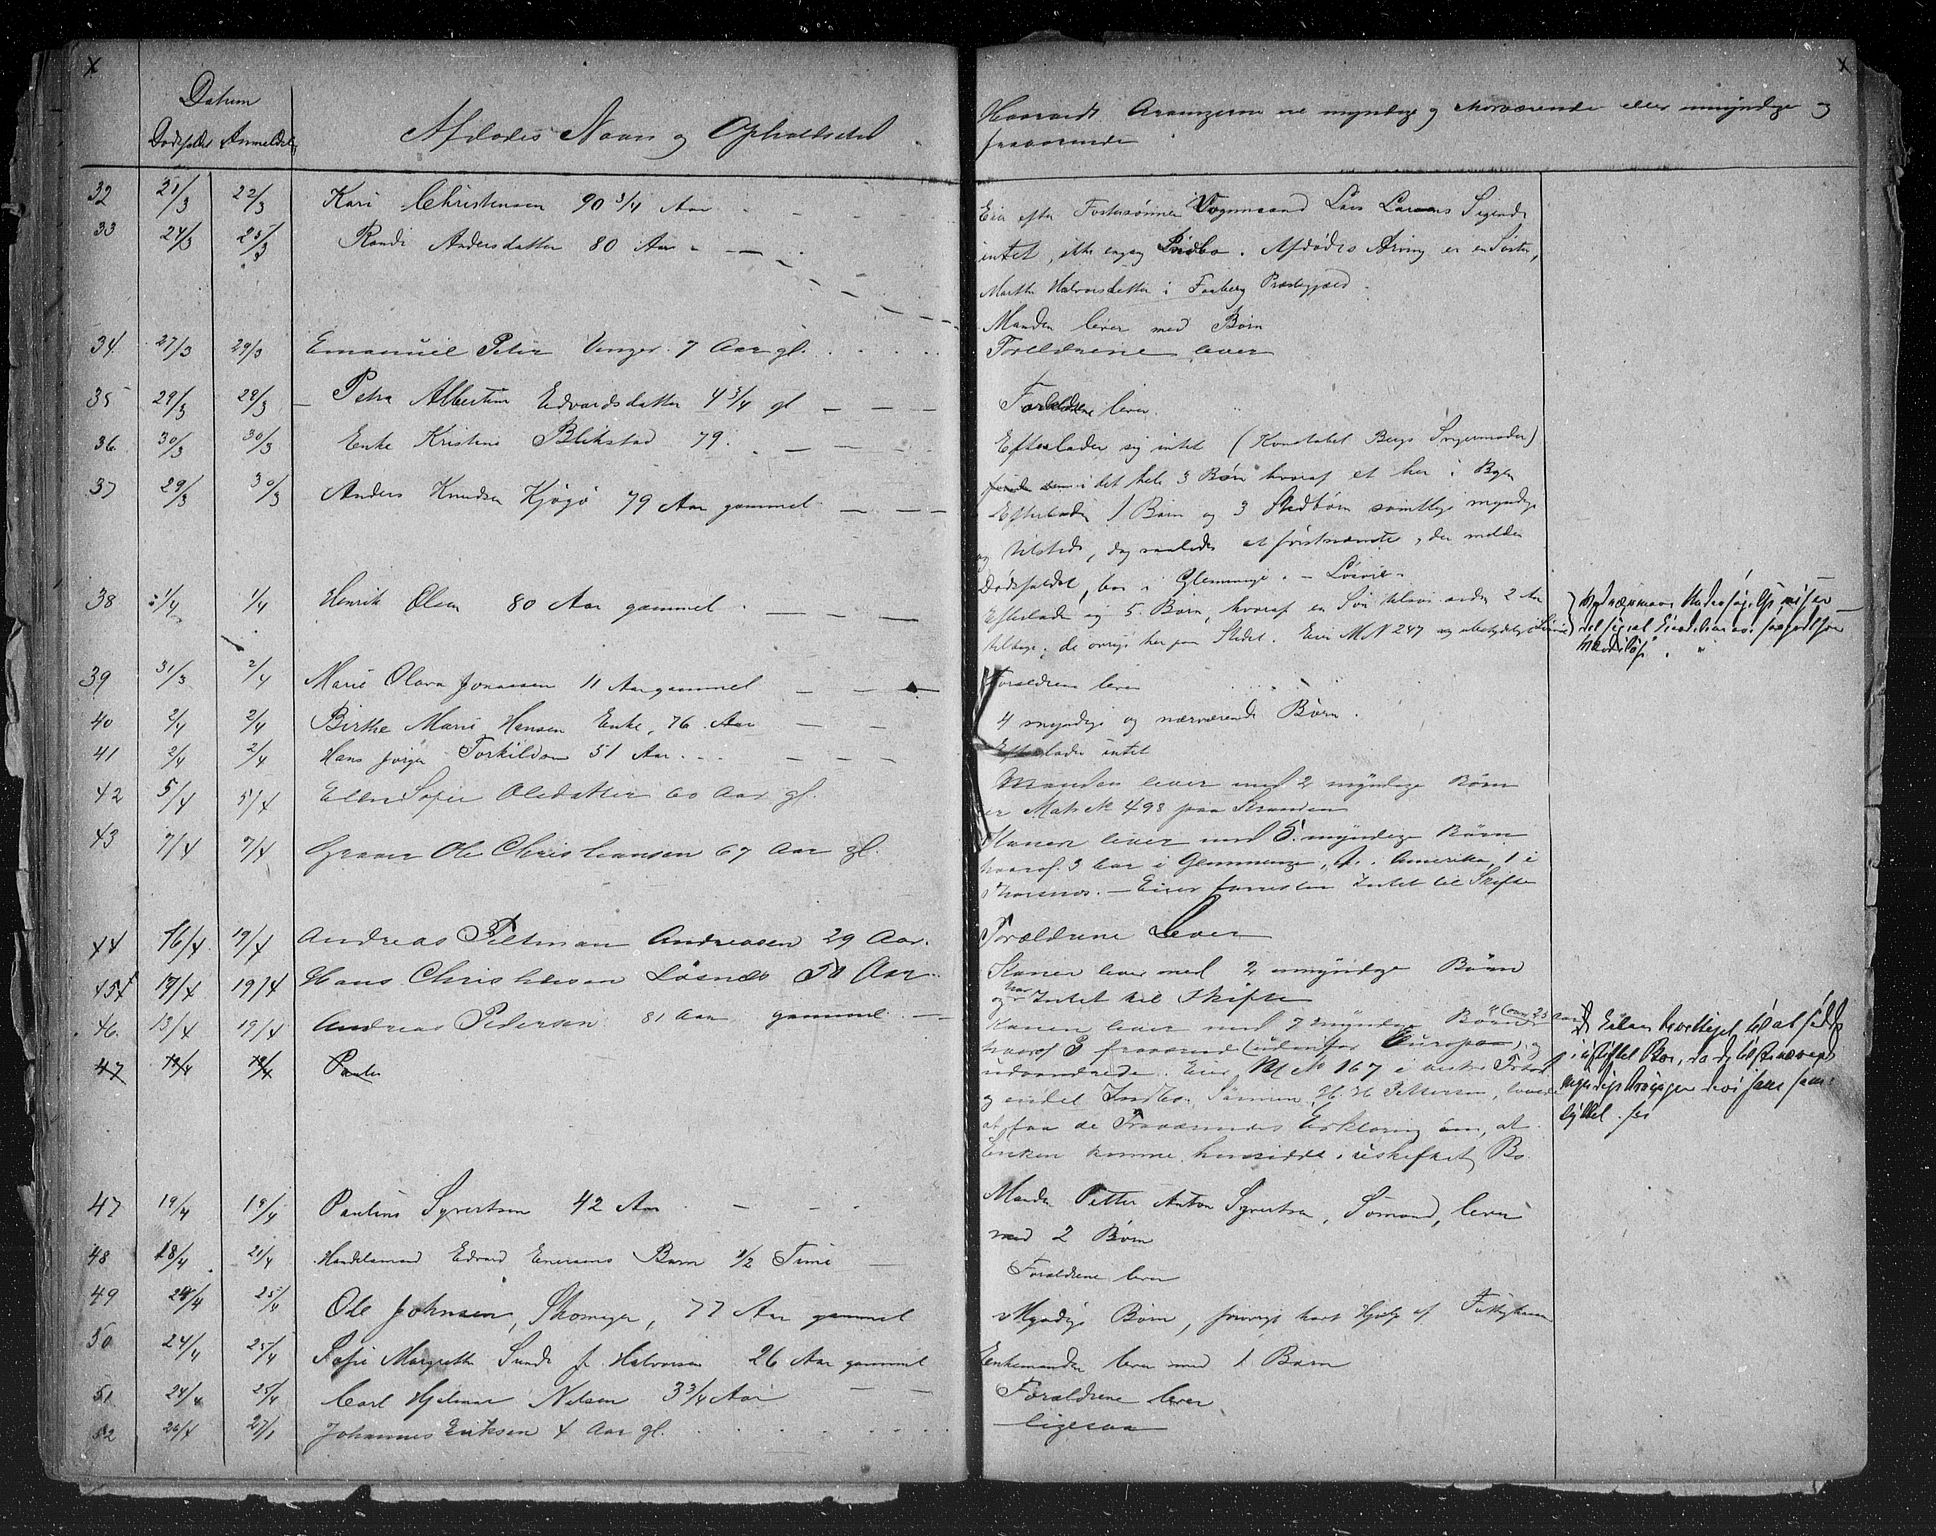 x
Datum
Dødsfaldet Anmeldelse
Afdødes Navn og Opholdssted
32 21/3 22/3 Kari Christensen 90 3/4 Aar
33 24/3 25/3 Randi Andersdatter 80 Aar
34 27/3 29/3 Emanuel Peter Unger 7 Aar gl.
35 29/3 29/3 Petra Albertine Edvardsdatter 4 3/4 gl
36 30/3 30/3 Enke Kristine Blikstad 79.
37 29/3 30/3 Anders Knudsen Kjøgø 79 Aar gammel
38 1/4 1/4 Henrik Olsen 80 Aar gammel
39 31/3 2/4 Marie Olava Jonassen 11 Aar gammel
40 2/4 2/4 Birthe Marie Hansen Enke, 76 Aar
41 2/4 2/4 Hans Jørgen Torkildsen 51 Aar
42 5/4 5/4 Ellen Sofie Olsdatter 60 Aar gl.
43 7/4 7/4 Ole Christiansen 67 Aar gl.
44 16/4 19/4 Andreas Peltman Andreasen 29 Aar.
45 17/4 19/4 Hans Christensen Løsnæs 50 Aar
46. 13/4 19/4 Andreas Pedersen 81 Aar gammel
47 19/4 19/4
47 19/4 19/4 Pauline Syvertsen 42 Aar
48 18/4 21/4 Handelsmand Edvard Enersens Barn 1/2 Time
49 24/4 25/4 Ole Johnsen, Skomager, 77 Aar gammel
50 24/4 25/4 Sofie Margrethe Sunde f. Halvorsen 26 Aar gammel
51 24/4 25/4 Carl Hjelmar Nilsen 3 3/4 Aar
52 Johannes Eriksen 4 Aar gl.
x
Hvorvidt Arvingerne er myndige og nærværende eller umyndige og
fraværende
Eier efter Fostersønnen Vognmand Lars Larsens Sigende
intet, ikke engang Indbo. Afdødes Arving er en Søster,
Marthe Halvorsdatter i Faaberg Præstegjæld
Manden lever med Børn
Forældrene lever
Forældrene lever.
Efterlader sig intet (Konstabel Bergs Svigermoder)
i det hele 3 Børn hvoraf et her i Byen
Efterlader 1 Barn og 3 Stedbørn samtlige myndige
og tilstede, dog saaledes at førstnævnte, der meldte
Dødsfaldet, bor i Glemminge.
Efterlader sig 5 Børn, hvoraf en Søn tilsøs siden 2 Aar
tilbage, de øvrige her paa Stedet. Eier M N 247 og ubetydeligt
Forældrene lever
4 myndige og nærværende Børn.
Efterlader intet
Manden lever med 2 myndige Børn
eier Mat N 498 paa Stranden
Konen lever med 5 myndige Børn
hvoraf 3 bor i Glemminge, 1 i Amerika, 1 i
Thorsnæs. — Eier forresten Intet til Skifte
Forældrene Lever
Konen lever med 2 umyndige Børn
og har Intet til Skifte
Konen lever med 7 myndige Børn
hvoraf 3 fraværende (udenfor Europa) og
udvandrede. Eier M N 167 i
og endel Indbo. Sønnen, H. H. Pettersen, lovede
at faa de Fraværendes Erklæring om, at
Enken kunne hensidde i uskiftet Bo.
Manden Petter Anton Syvertsen, Sømand, lever
med 2 Børn
Forældrene lever
Myndige Børn, forøvrigt havt Hjælp af Fattigkassen
Enkemanden lever med 1 Barn
Forældrene lever
ligesaa